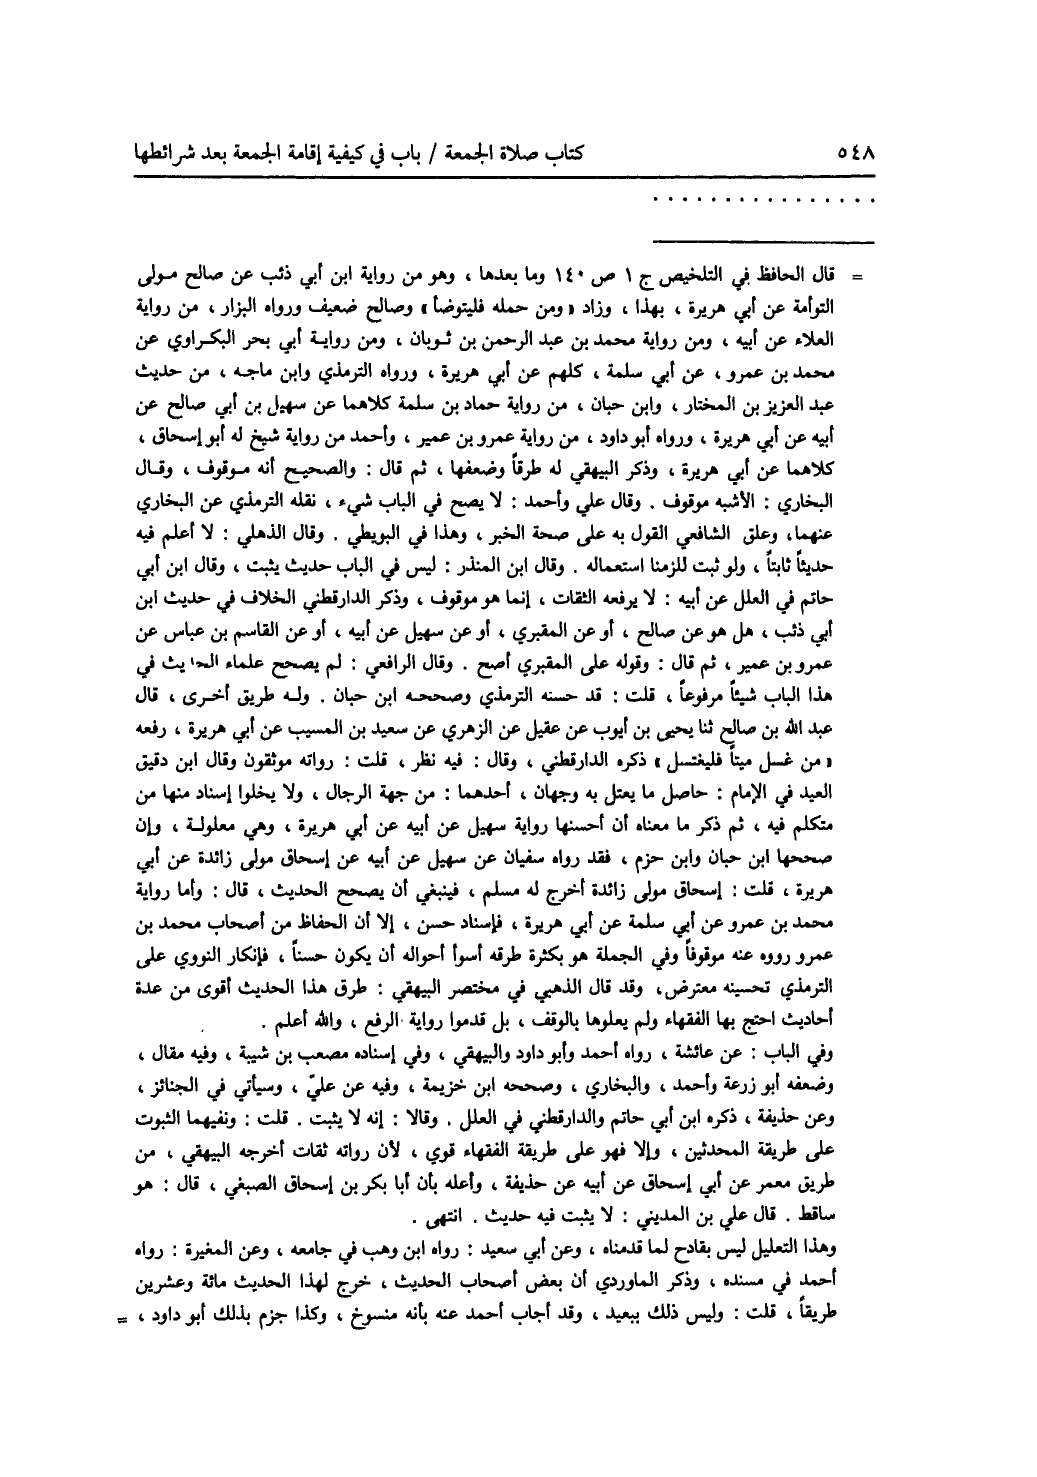 ٥٤٨ كتاب صلاة الجمعة / باب في كيفية إقامة الجمعة بعد شرائطها
. . . . . . . . . . . . . . . .
= قال الحافظ في التلخيص ج ١ ص ١٤٠ وما بعدها ، وهو من رواية ابن أبي ذئب عن صالح مولى
التوأمة عن أبي هريرة ، بهذا ، وزاد « ومن حمله فليتوضأ » وصالح ضعيف ورواه البزار ، من رواية
العلاء عن أبيه ، ومن رواية محمد بن عبد الرحمن بن ثوبان ، ومن رواية أبي بحر البكراوي عن
محمد بن عمرو ، عن أبي سلمة ، كلهم عن أبي هريرة ، ورواه الترمذي وابن ماجه ، من حديث
عبد العزيز بن المختار ، وابن حبان ، من رواية حماد بن سلمة كلاهما عن سهيل بن أبي صالح عن
أبيه عن أبي هريرة ، ورواه أبو داود ، من رواية عمرو بن عمير ، وأحمد من رواية شيخ له أبو إسحاق ،
كلاهما عن أبي هريرة ، وذكر البيهقي له طرقاً وضعفها ، ثم قال : والصحيح أنه موقوف ، وقال
البخاري : الأشبه موقوف . وقال علي وأحمد : لا يصح في الباب شيء ، نقله الترمذي عن البخاري
عنهما، وعلق الشافعي القول به على صحة الخبر ، وهذا في البويطي . وقال الذهلي : لا أعلم فيه
حديثاً ثابتاً ، ولو ثبت للزمنا استعماله . وقال ابن المنذر : ليس في الباب حديث يثبت ، وقال ابن أبي
حاتم في العلل عن أبيه : لا يرفعه الثقات ، إنما هو موقوف ، وذكر الدارقطني الخلاف في حديث ابن
أبي ذئب ، هل هو عن صالح ، أو عن المقبري ، أو عن سهيل عن أبيه ، أو عن القاسم بن عباس عن
عمرو بن عمير ، ثم قال : وقوله على المقبري أصح . وقال الرافعي : لم يصحح علماء الحديث في
هذا الباب شيئاً مرفوعاً ، قلت : قد حسنه الترمذي وصححه ابن حبان . وله طريق أخرى ، قال
عبد الله بن صالح ثنا يحيى بن أيوب عن عقيل عن الزهري عن سعيد بن المسيب عن أبي هريرة ، رفعه
« من غسل ميتاً فليغتسل » ذكره الدارقطني ، وقال : فيه نظر ، قلت : رواته موثقون وقال ابن دقيق
العيد في الإمام : حاصل ما يعتل به وجهان ، أحدهما : من جهة الرجال ، ولا يخلوا إسناد منها من
متكلم فيه ، ثم ذكر ما معناه أن أحسنها رواية سهيل عن أبيه عن أبي هريرة ، وهي معلولة ، وإن
صححها ابن حبان وابن حزم ، فقد رواه سفيان عن سهيل عن أبيه عن إسحاق مولى زائدة عن أبي
هريرة ، قلت : إسحاق مولى زائدة أخرج له مسلم ، فينبغي أن يصحح الحديث ، قال : وأما رواية
محمد بن عمرو عن أبي سلمة عن أبي هريرة ، فإسناد حسن ، إلا أن الحفاظ من أصحاب محمد بن
عمرو رووه عنه موقوفاً وفي الجملة هو بكثرة طرقه أسوأ أحواله أن يكون حسناً ، فإنكار النووي على
الترمذي تحسينه معترض، وقد قال الذهبي في مختصر البيهقي : طرق هذا الحديث أقوى من عدة
أحاديث احتج بها الفقهاء ولم يعلوها بالوقف ، بل قدموا رواية الرفع ، والله أعلم .
وفي الباب : عن عائشة ، رواه أحمد وأبو داود والبيهقي ، وفي إسناده مصعب بن شيبة ، وفيه مقال ،
وضعفه أبو زرعة وأحمد ، والبخاري ، وصححه ابن خزيمة ، وفيه عن عليّ ، وسيأتي في الجنائز ،
وعن حذيفة ، ذكره ابن أبي حاتم والدارقطني في العلل . وقالا : إنه لا يثبت . قلت : ونفيهما الثبوت
على طريقة المحدثين ، وإلا فهو على طريقة الفقهاء قوي ، لأن رواته ثقات أخرجه البيهقي ، من
طريق معمر عن أبي إسحاق عن أبيه عن حذيفة ، وأعله بأن أبا بكر بن إسحاق الصبغي ، قال : هو
ساقط . قال علي بن المديني : لا يثبت فيه حديث . انتهى .
وهذا التعليل ليس بقادح لما قدمناه ، وعن أبي سعيد : رواه ابن وهب في جامعه ، وعن المغيرة : رواه
أحمد في مسنده ، وذكر الماوردي أن بعض أصحاب الحديث ، خرج لهذا الحديث مائة وعشرين
طريقاً ، قلت : وليس ذلك ببعيد ، وقد أجاب أحمد عنه بأنه منسوخ ، وكذا جزم بذلك أبو داود ، =